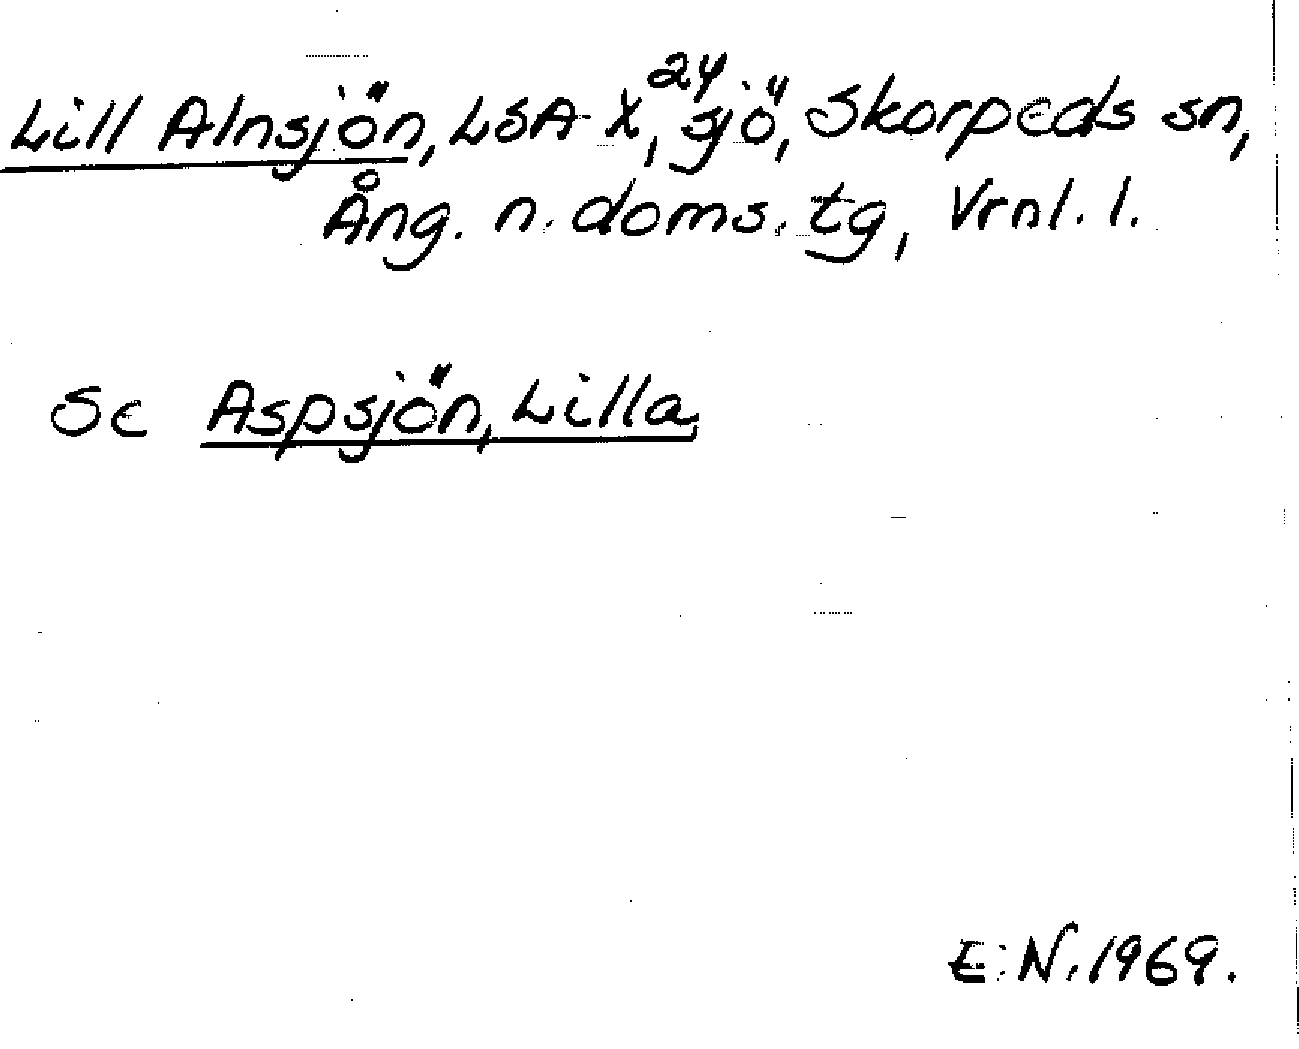 Lill Alnsjön, LSA X²⁴, sjö, Skorpeds sn,
Ång. n. doms. tg, Vrnl. l.
Se Aspsjön, Lilla
E.N. 1969.